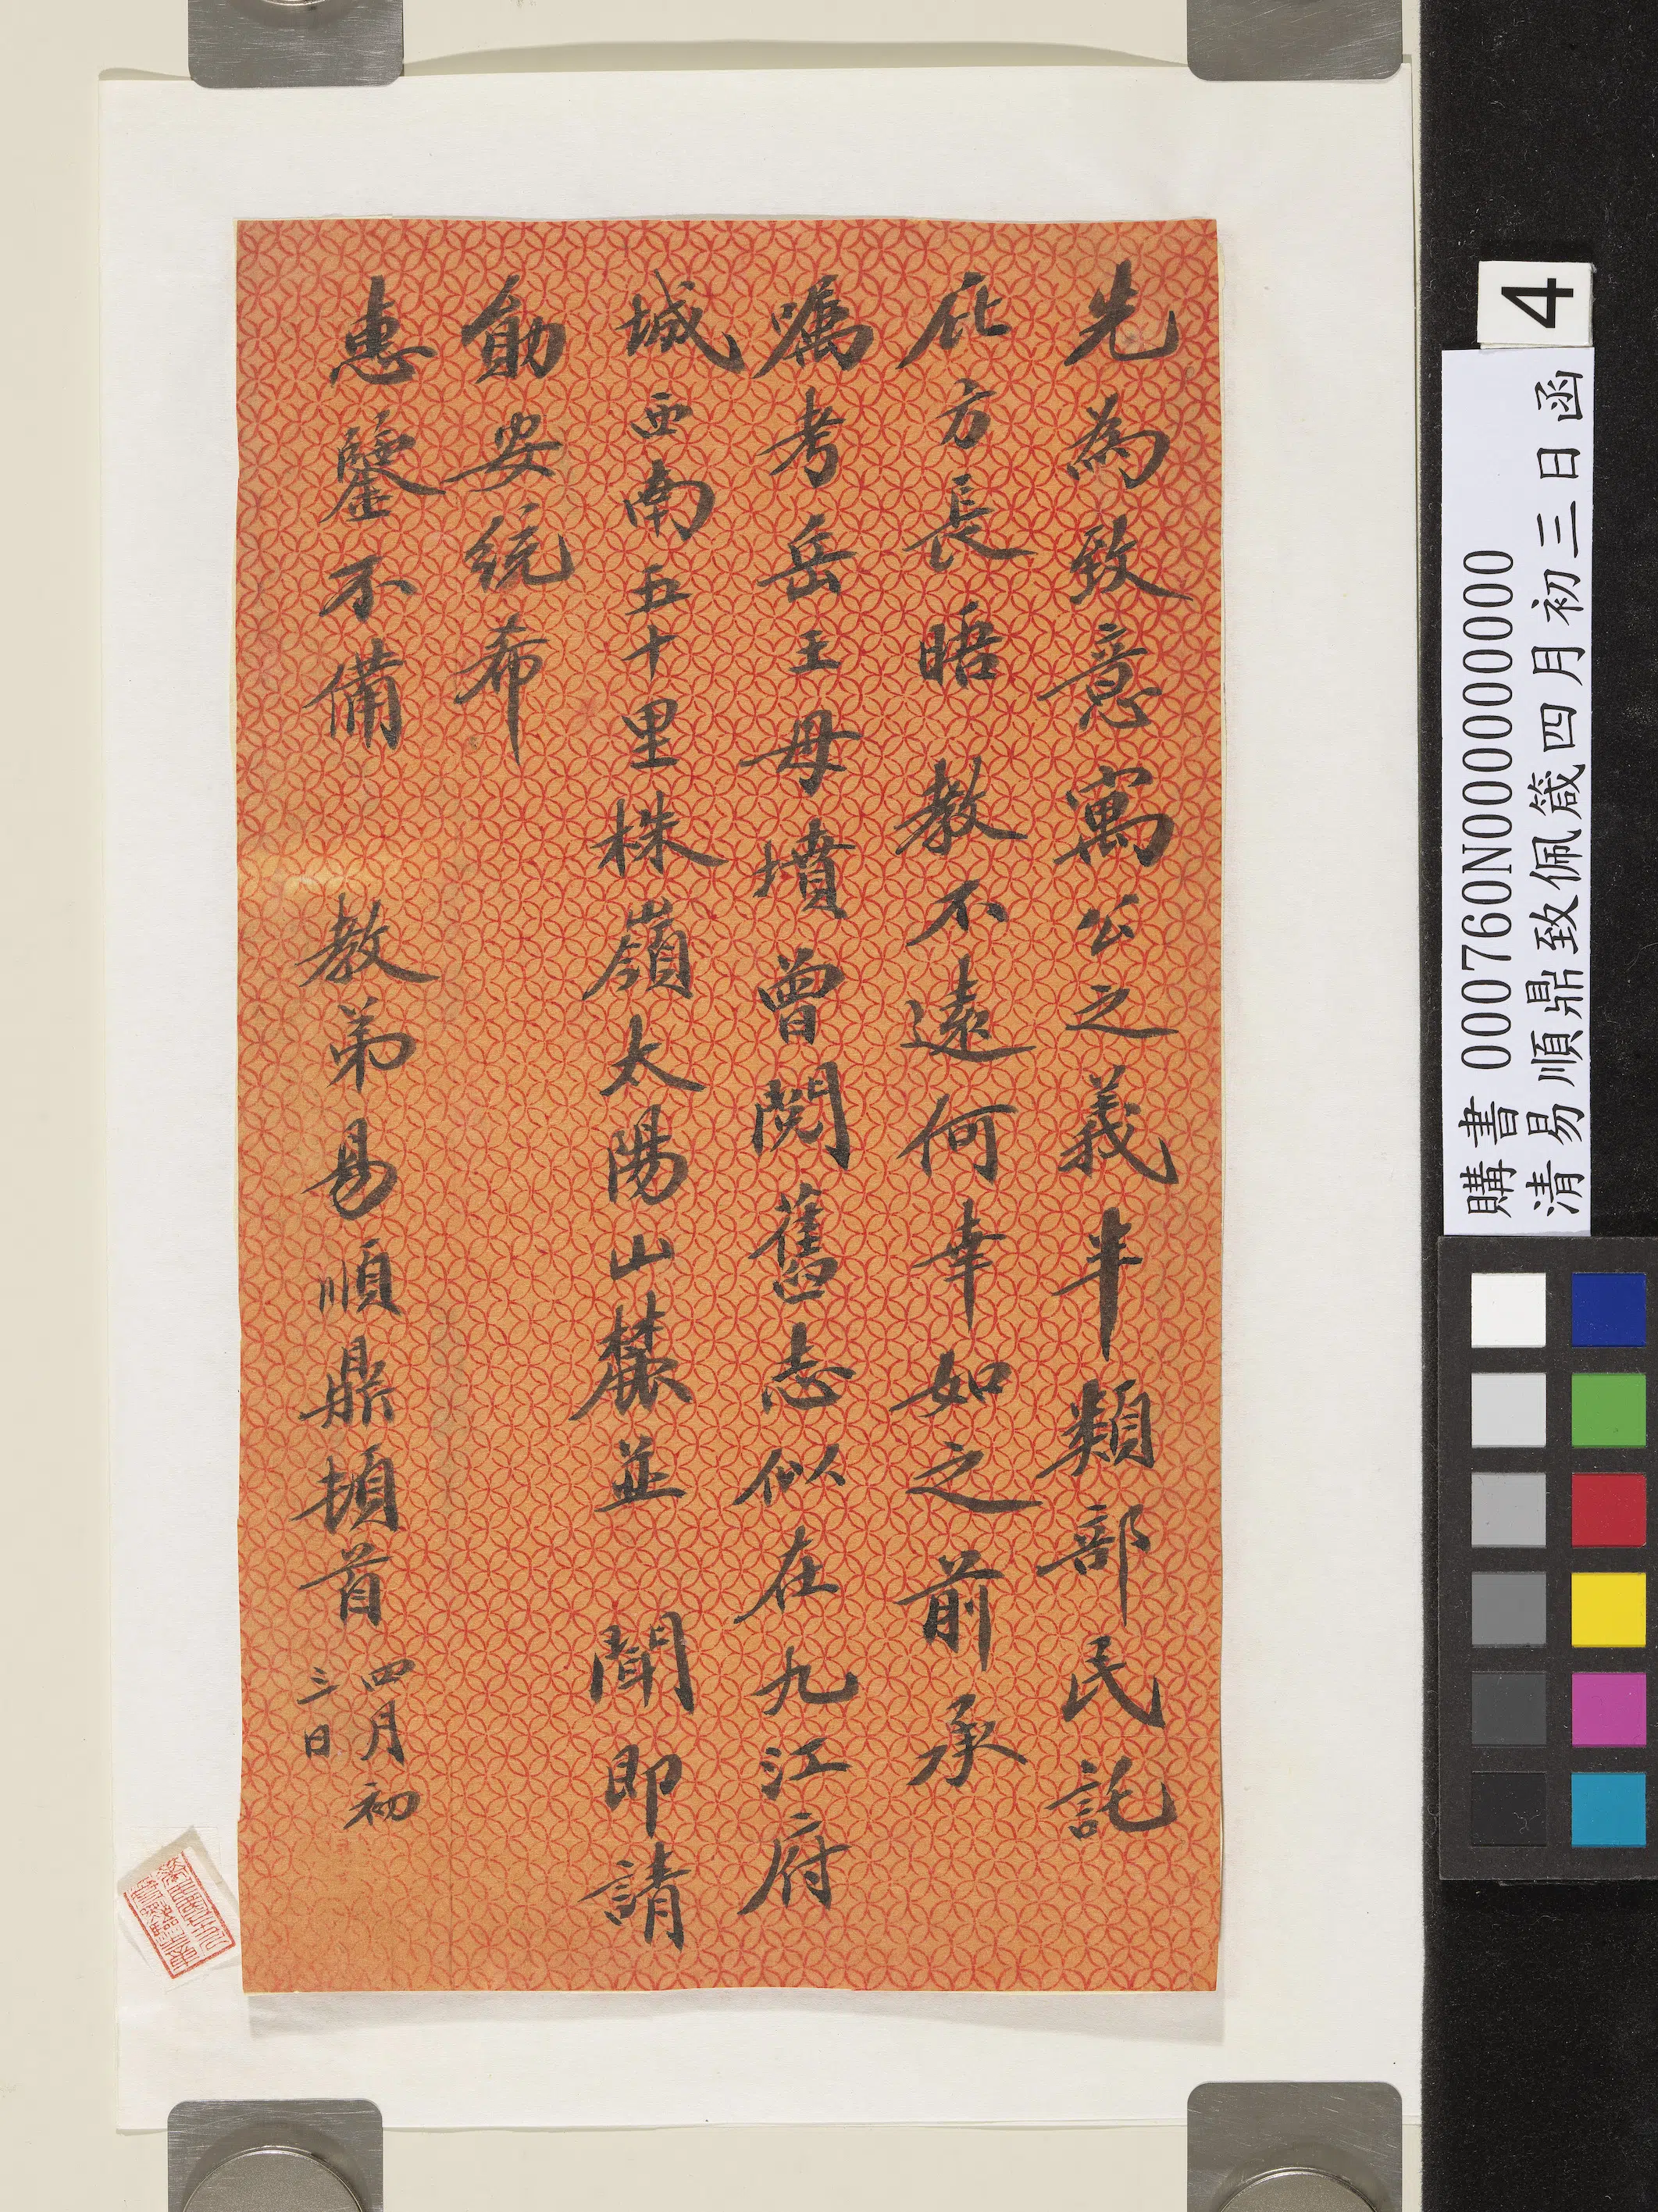 先為致意寓公之義半類部民託
庇方長晤教不遠何幸如之前承
囑考岳王母墳曾閱舊志似在九江府
城西南五十里株嶺太陽山麓並聞即請
勛安統希
惠鑒不備　教弟易順鼎頓首四月初
三日
4
購書 000760N000000000
清易順鼎致佩箴四月初三日函